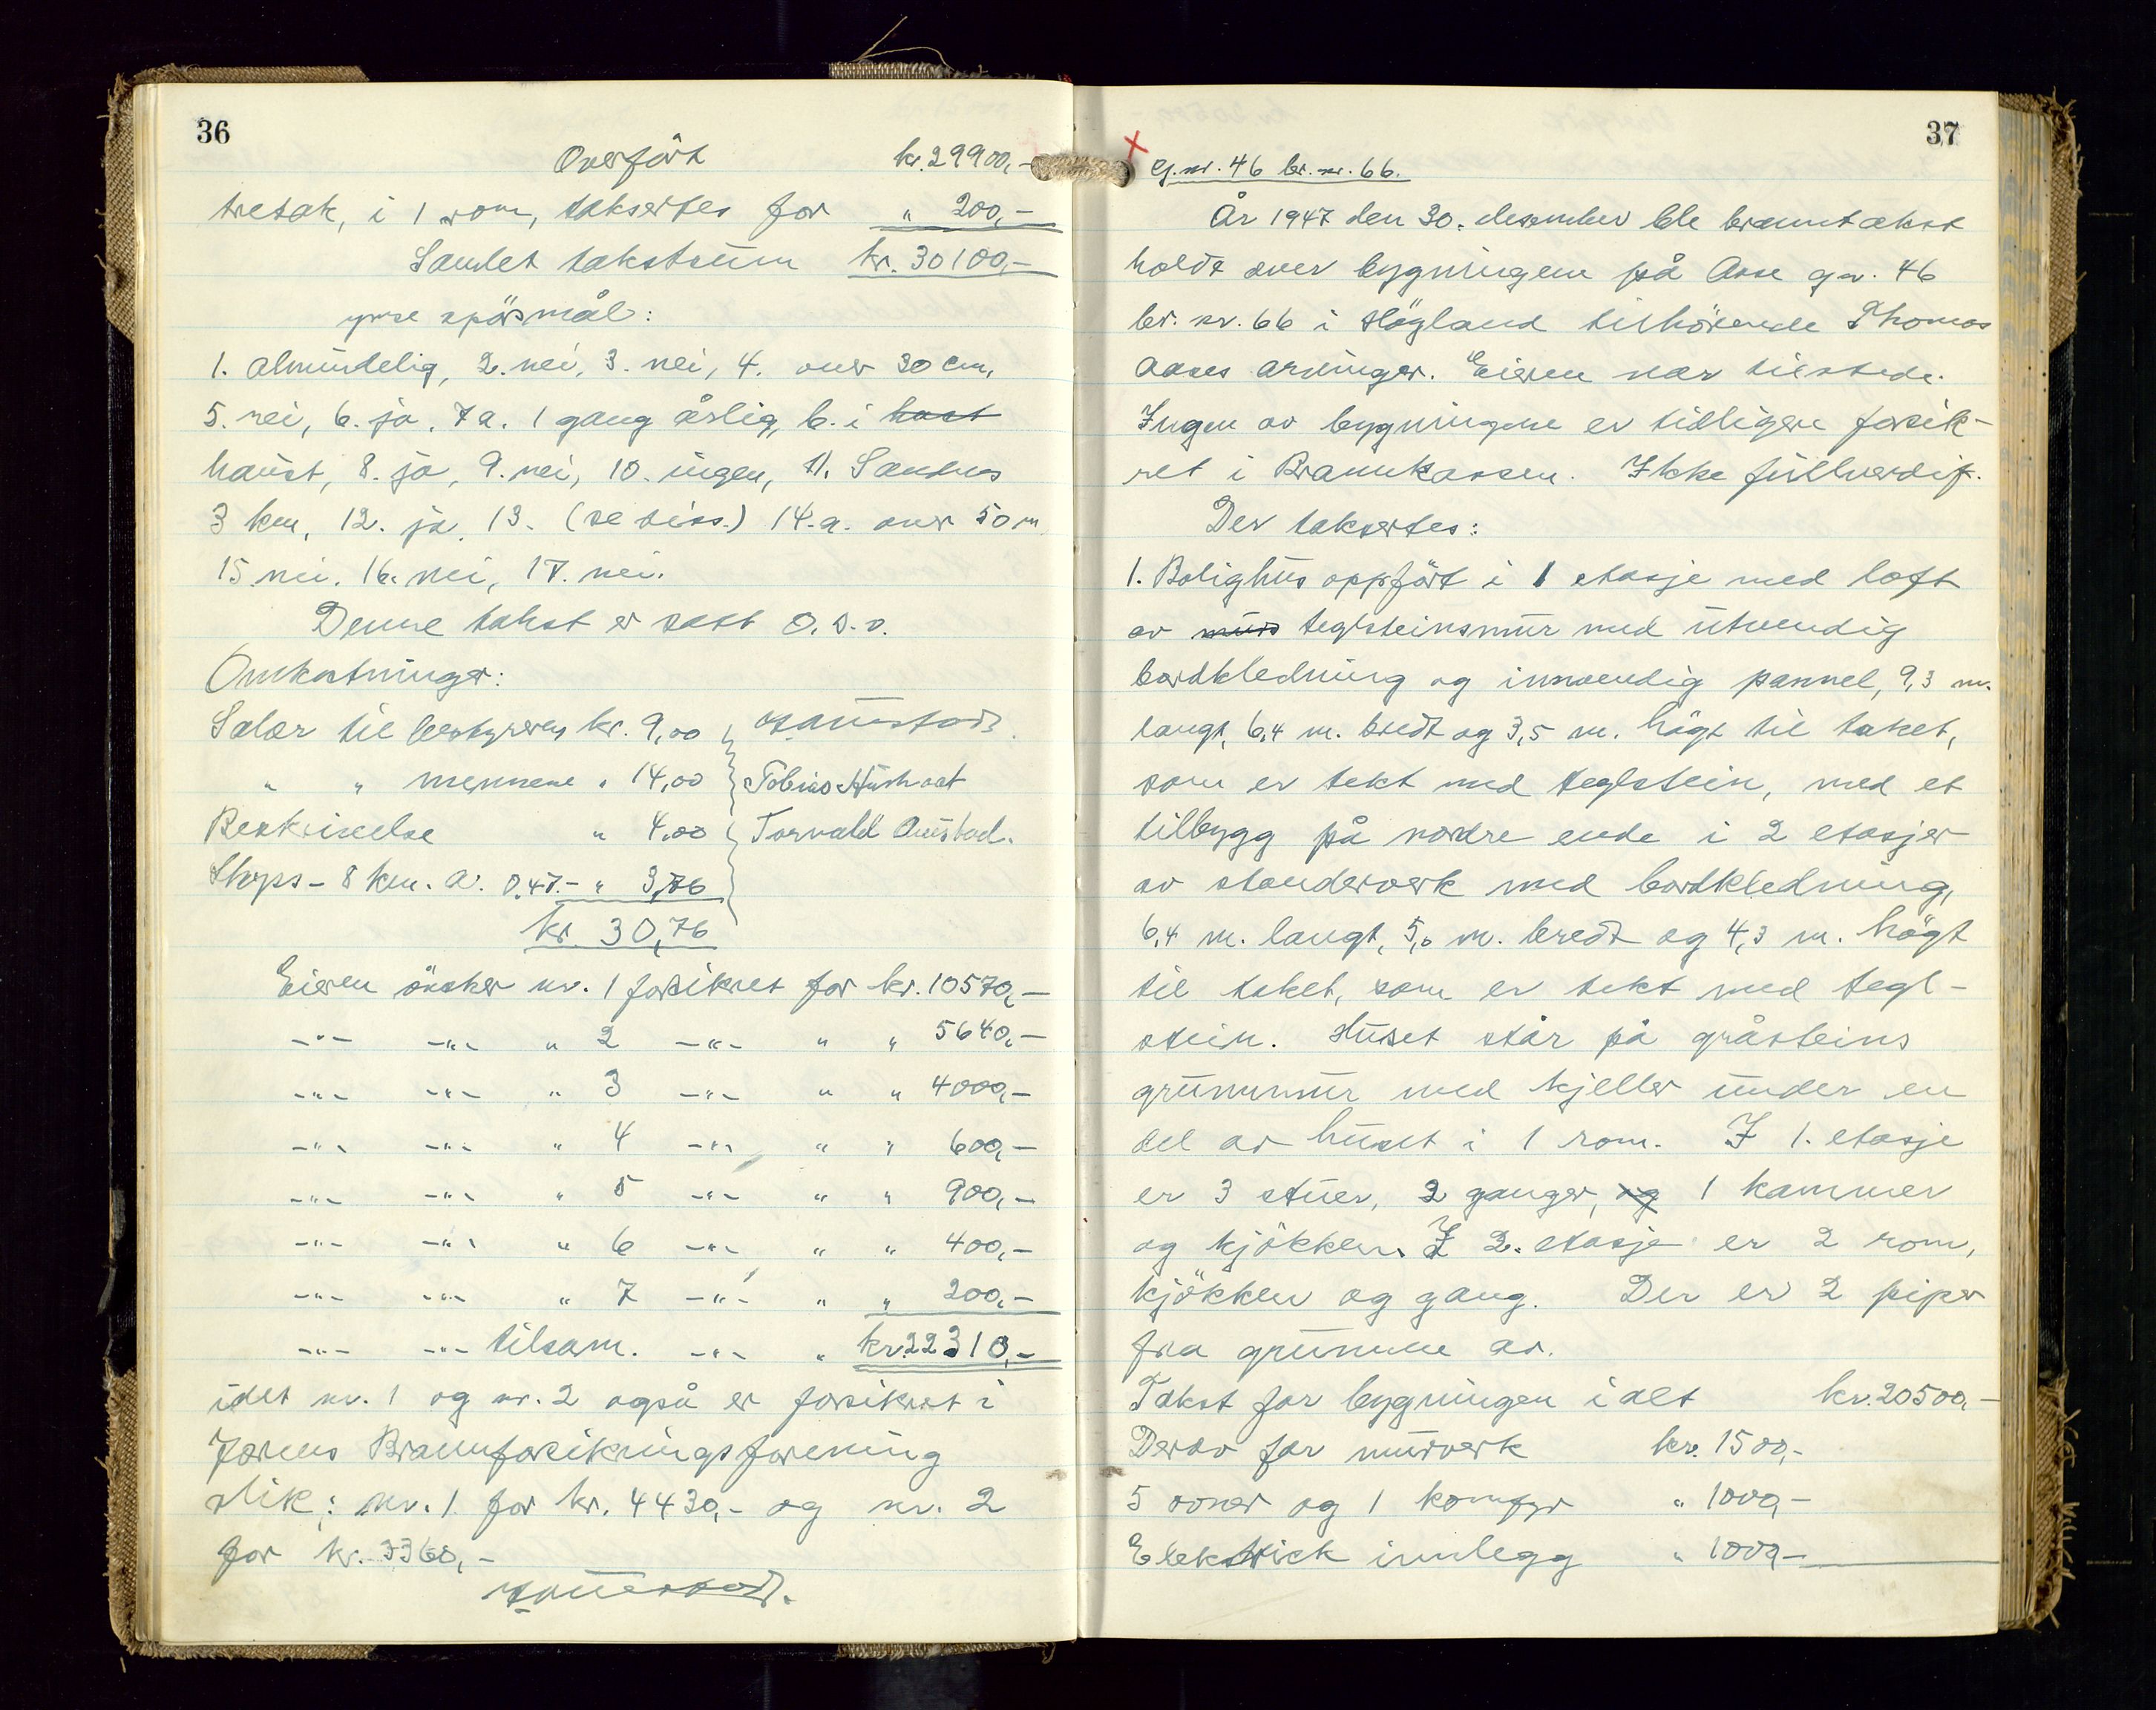 36
Overfört kr. 29900,-
tretak, i 1 rom, taksertes for " 200,-
Samlet takstsum kr. 30100,-
ymse spörsmål:
1. almindelig, 2. nei, 3. nei, 4. over 30 cm,
5. nei, 6. ja, 7a. 1 gang årlig, b. i host
haust, 8. ja, 9. nei, 10. ingen, 11. Sandnes
3 km, 12. ja, 13. (se diss.) 14.a. over 50 m
15 nei. 16. nei, 17. nei.
Denne takst er satt o.s.v.
Omkostninger:
Salær til bestyreren kr. 9,00
" " mennene " 14,00 Tobias
Beskrivelse " 4,00 Torvald Austad.
Skyss - 8 km. a. 0,47.- " 3,76
kr. 30,76
Eieren önsker nr. 1 forsikret for kr. 10570,-
-"- -"- " 2 -"- " " 5640,-
-"- -"- " 3 -"- " " 4000,-
-"- -"- " 4 -"- " " 600,-
-"- -"- " 5 -"- " " 900,-
-"- -"- " 6 -"- " " 400,-
-"- -"- " 7 -"- " " 200,-
-"- -"- tilsam. -"- " kr. 22310,-
idet nr. 1 og nr. 2 også er forsikret i
Jærens Brannforsikringsforening
slik: nr. 1 for kr. 4430,- og nr. 2
for kr. 3360,-
37
G.nr. 46 br.nr. 66.
År 1947 den 30. desember ble branntakst
holdt over bygningene på Ase gnr. 46
br. nr. 66 i Högland tilhörende Thomas
Aases arvinger. Eieren var tilstede.
Ingen av bygningene er tidligere forsik-
ret i Brannkassen. Ikke fullverdif.
Der taksertes:
1. Bolighus oppfört i 1 etasje med loft
av murs teglsteinsmur med utvendig
bordkledning og innvendig pannel, 9,3 m.
langt, 6,4 m. bredt og 3,5 m. högt til taket,
som er tekt med teglstein, med et
tilbygg på nordre ende i 2 etasjer
av standerverk med bordkledning,
6,4 m. langt, 5,0 m. bredt og 4,3 m. högt
til taket, som er tekt med tegl-
stein. Huset står på gråsteins
grunnmur med kjeller under en
del av huset i 1 rom. I 1. etasje
er 3 stuer, 2 ganger, og 1 kammer
og kjökken. I 2. etasje er 2 rom,
kjökken og gang. Der er 2 piper
fra grunnen av.
Takst for bygningen i alt kr. 20500,-
Derav for murverk kr. 1500,-
5 ovner og 1 komfyr " 1000,-
Elektrisk innlegg " 1000,-